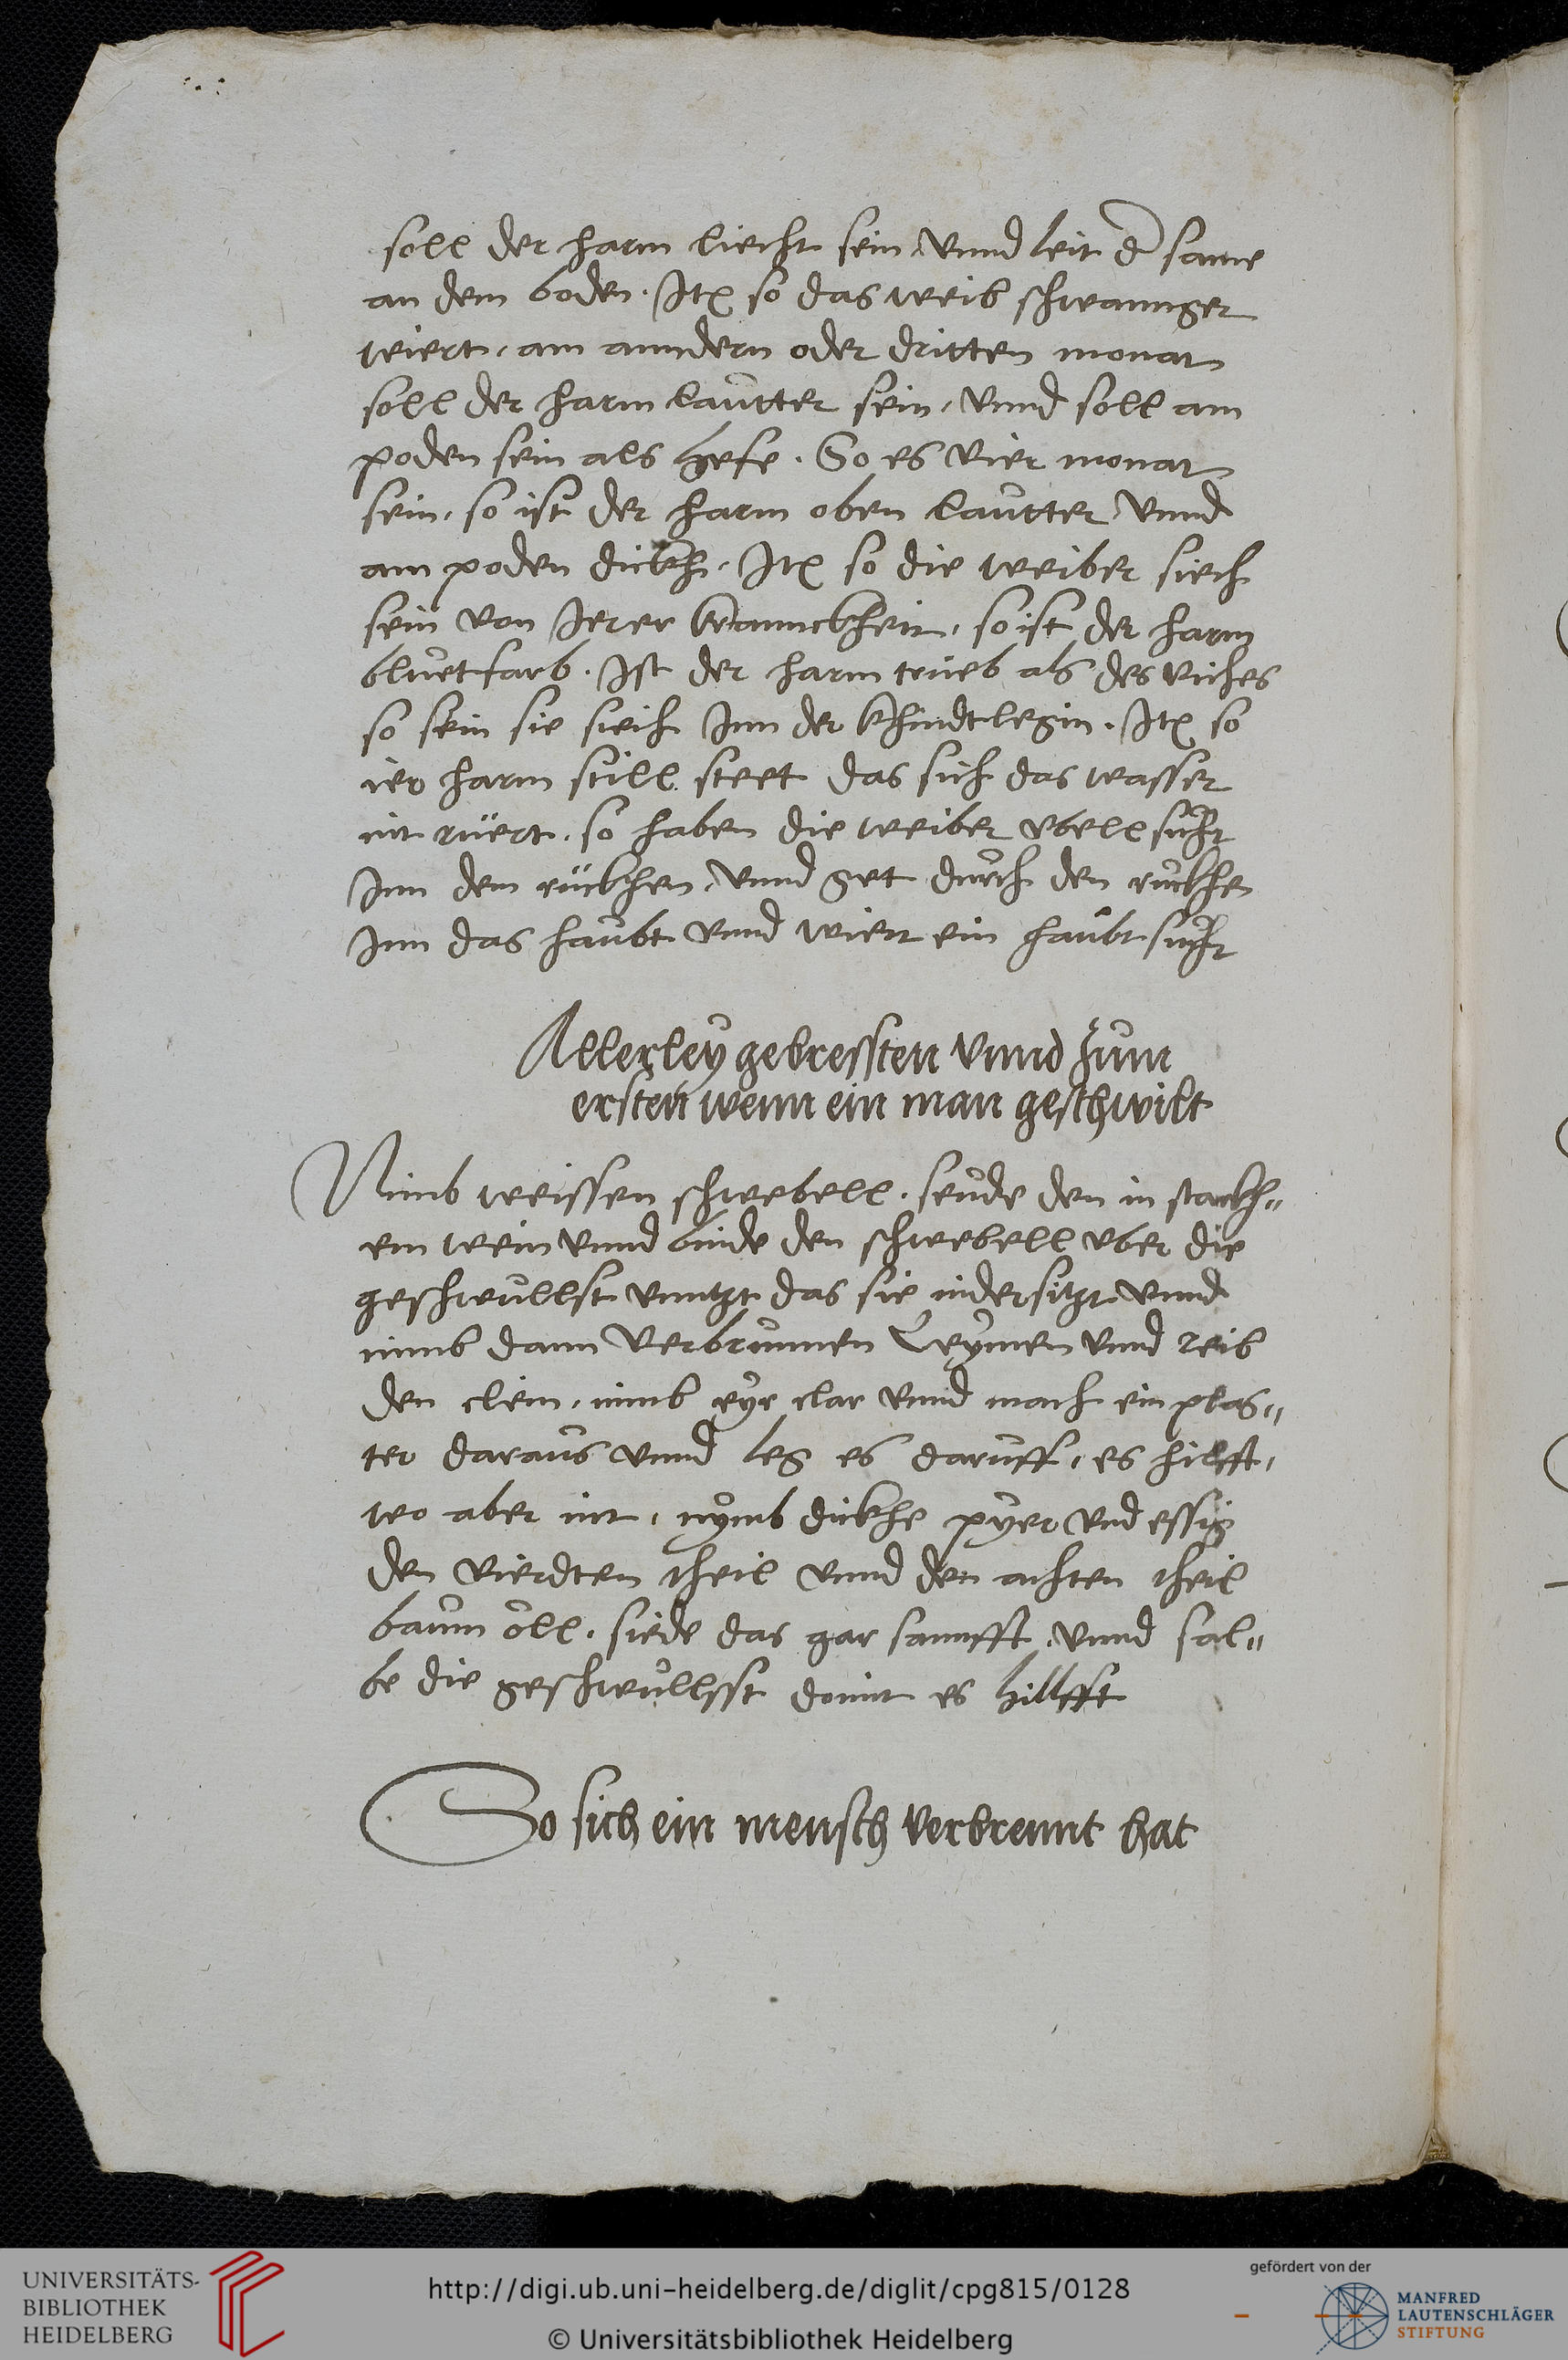 soll der harm liecht sein vnnd leit d same
an dem boden. Itē so das weib schwannger
wiert, am anndern oder dritten monat
soll der harm lautter sein, vnnd soll am
poden sein als hefe. So es vier monat
sein, so ist der harm oben lautter vnnd
am poden dickh, Itē so die weiber siech
sein von Jerer krannckheit, so ist der harm
bluetfarb. Ist der harm trüeb als des viches
so sein sie siech Jnn der khindtlegin. Itē so
ier harm still steet das sich das wasser
nit rüert. so haben die weiber vbell sucht
Jnn dem rückhen, vnnd get durch den ruckhen
Jnn das haubt vnnd wiert ein haubt sucht
Allerley gebressten vnnd zum
ersten wenn ein man geschwilt
Nimb weissen schwebell. seude den in starckh=
em wein vnnd binde den schwebell vber die
geschwullst vnntzt das sie nidersitzt vnnd
nimb dann verbrunnen Leymen vnnd reib
den clein, nimb eyr clar vnnd mach ein plas=
ter daraus vnnd leg es daruff, es hilfft,
wo aber nit, nymb dickhe pyer vnd essig
den vierdten theil vnnd den achten theil
baum öll. siede das gar sannfft, vnnd sal=
be die geschwullsst domit es hillfft
So sich ein mensch verbrennt hat
UNIVERSITÄTS-
BIBLIOTHEK
HEIDELBERG
http://digi.ub.uni-heidelberg.de/diglit/cpg815/0128
© Universitätsbibliothek Heidelberg
gefördert von der
MANFRED
LAUTENSCHLÄGER
STIFTUNG